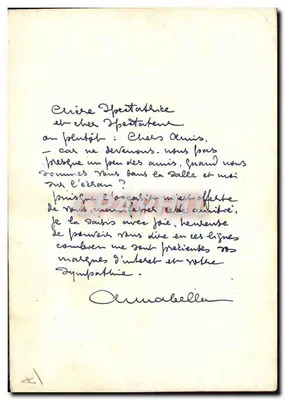 Chère Spectatrice
et cher Spectateur
ou plutôt : Chers Amis,
– car ne devenons-nous pas
presque un peu des amis, quand nous
sommes vous dans la salle et moi
sur l'écran ?
puisque l'occasion m'est offerte
de vous manifester cette amitié,
je la saisis avec joie, heureuse
de pouvoir vous dire en ces lignes
combien me sont précieuses vos
marques d'intérêt et votre
sympathie.
Annabella